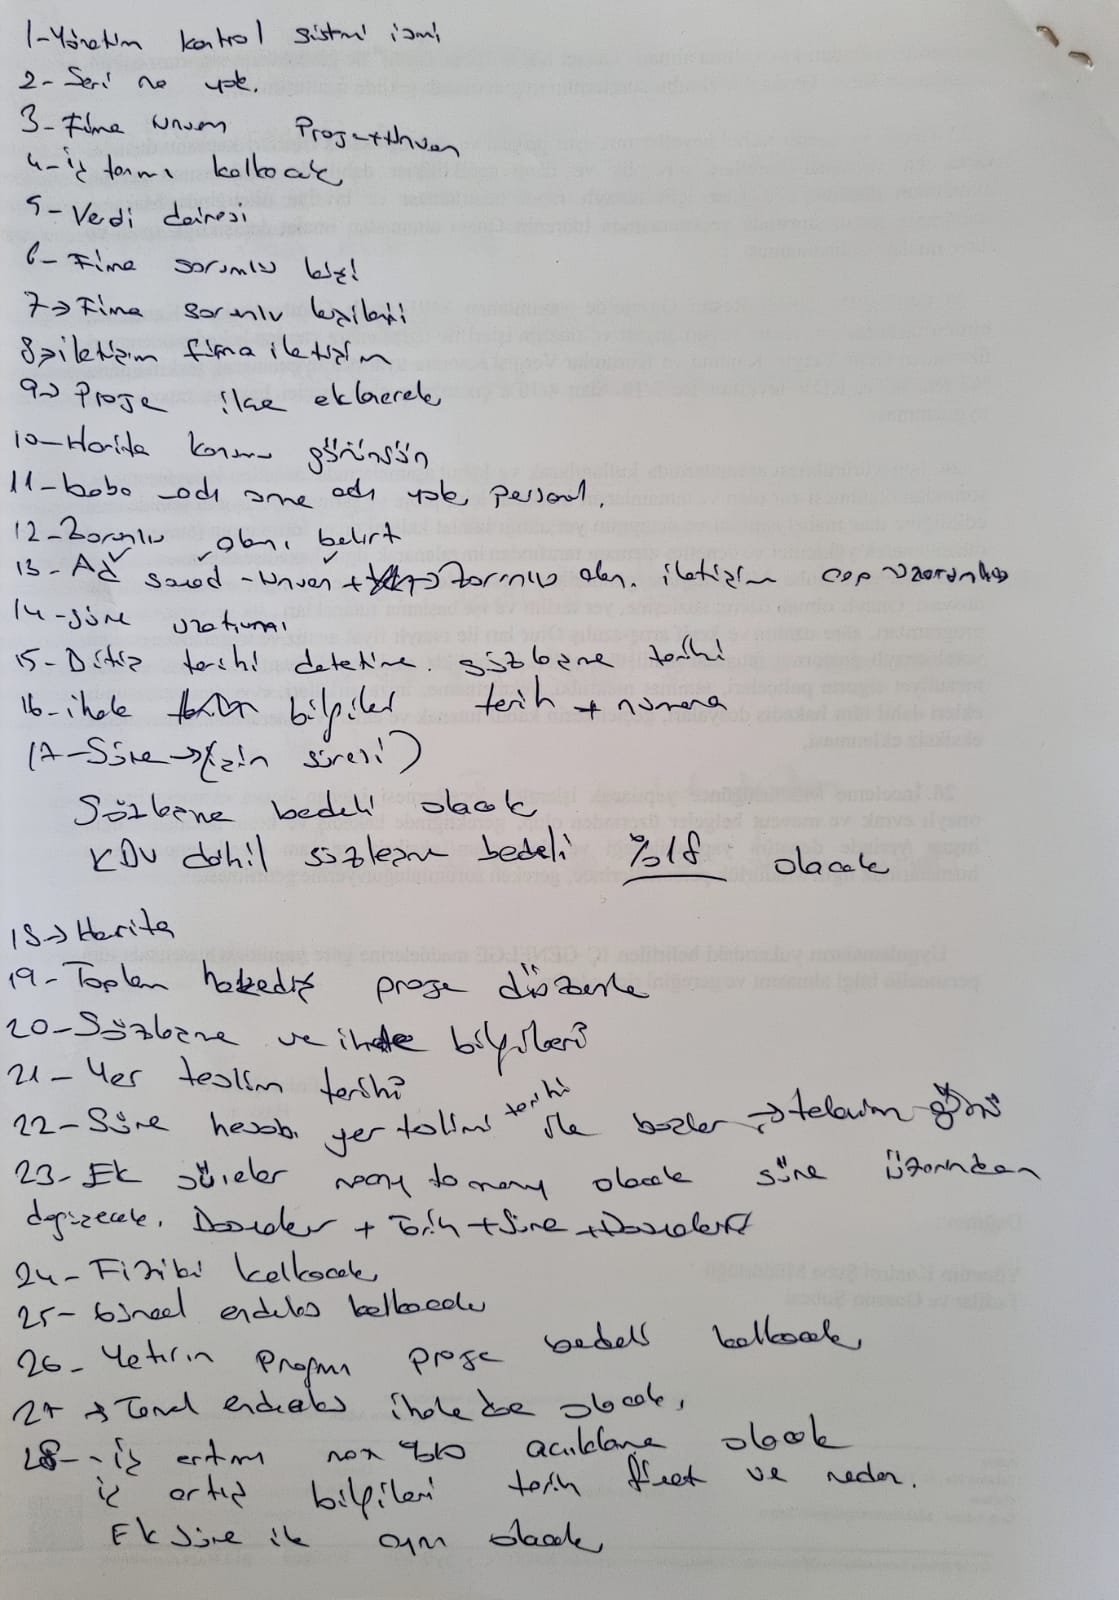 1-Yönetim kontrol sistmi ismi
2- Seri no yok.
3- Firma ünvan Proje+ünvan
4- iş tanımı kalkacak
5- Vergi dairesi
6- Firma sorumlu kişi
7-> Firma sorumlu kişileri
8->iletişim firma iletişim
9-> Proje ilçe eklenecek
10-Harita konumu görünsün
11-baba adı anne adı yok personel.
12-Zorunlu alanı belirt
13- Ad soyad -ünvan + -> zorunlu alan. iletişim cep zorunlu
14-süre uzatımı
15- Bitiş tarihi sözleşme tarihi
16- ihale bilgileri tarih + numara
17-Süre->(işin süresi)
Sözleşme bedeli olacak
KDV dahil sözleşme bedeli %18 olacak
18-> Harita
19- Toplam hakediş proje düzenle
20-Sözleşme ve ihale bilgileri?
21- Yer teslim tarihi?
22-Süre hesabı yer teslimi tarihi ile başlar -> takvim günü
23- Ek süreler many to many olacak süre üzerinden
değişecek. + Tarih + Süre +
24- kalkacak
25- Güncel endeks kalkacak
26- Yatırım Program proje bedeli kalkacak
27 -> Temel endeks ihalede olacak.
28- iş artımı max %10 açıklama olacak
iş artış bilgileri tarih ve neden.
Ek süre ile aynı olacak